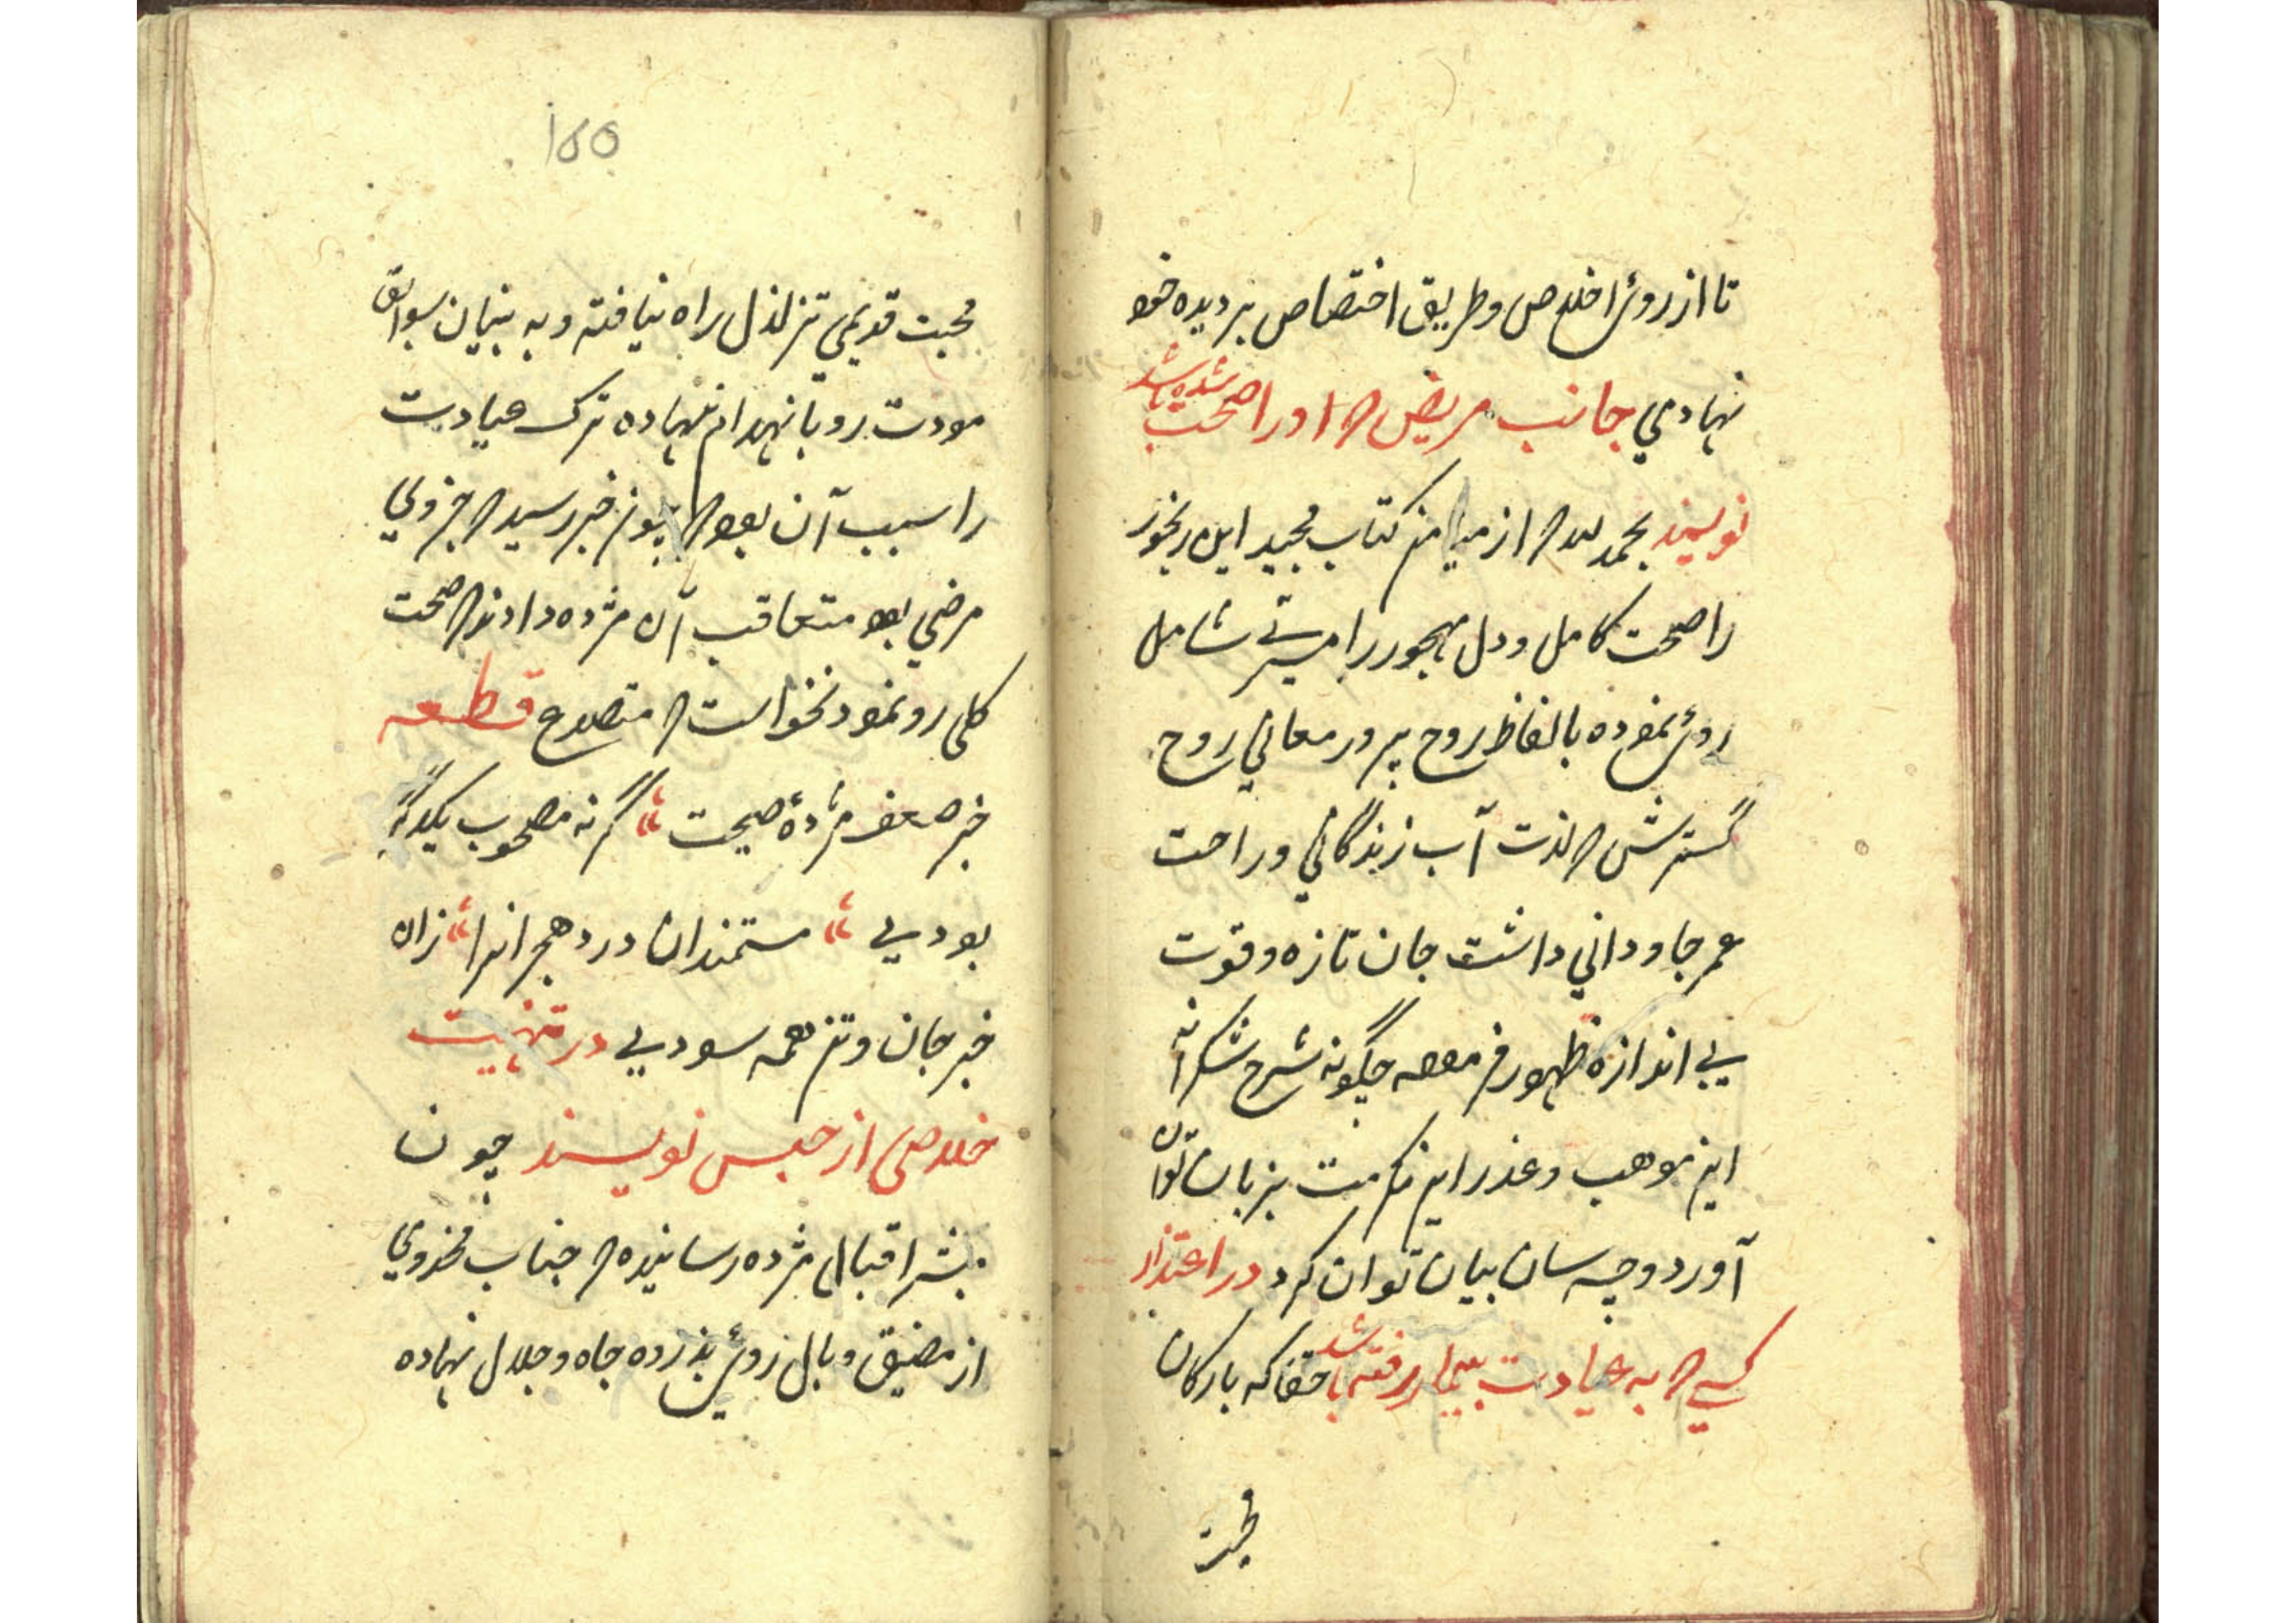 تا از روئ اخلاص و طریق اختصاص بر دیده خود
نهادمي جانب مریض که او را صحت شده باشد
نویسند بحمد لله که از میامن کتاب مجید این رنجور
را صحت کامل و دل مهجور را مسرتے شامل
روئ نموده بالفاظ روح پرور معاني روح
گسترش که لذت آب زندگاني و راحت
عمر جاوداني داشت جان تازه و قوت
بے اندازه ظهور فرموده چگونه شرح شکرانه
این موهب و عذر این مکرمت بزبان توان
آورد و چه سان بیان توان کرد در اعتذار
کسے که به عیادت بیمار نرفته باشد حقا که بارکان
محبت
۱۵۵
محبت قدیمي تزلزل راه نیافته و به بنیان سوابق
مودت رو بانهدام ننهاده ترک عیادت
را سبب آن بود که هنوز خبر رسید که جزوي
مرضي بود متعاقب آن مژده دادند که صحت
کلی رو نمود نخواست که متصدع قطعه
خبر ضعف مژدهٔ صحت گر نه مصحوب یکدگر
بودیے مستمندان درد هجرانرا زان
خبر جان و تن همه سودیے در تهنیت
خلاصی از حبس نویسند چون
مبشر اقبال مژده رسانیده که جناب مخدومي
از مضیق وبال روئ بذروه جاه و جلال نهاده